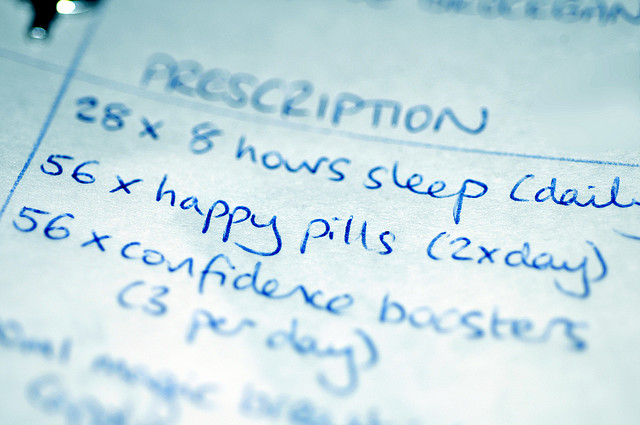 PRESCRIPTION
28 x 8 hours sleep (daily
56 x happy pills (2xday)
56 x confidence boosters
(3 per day)
ml magic